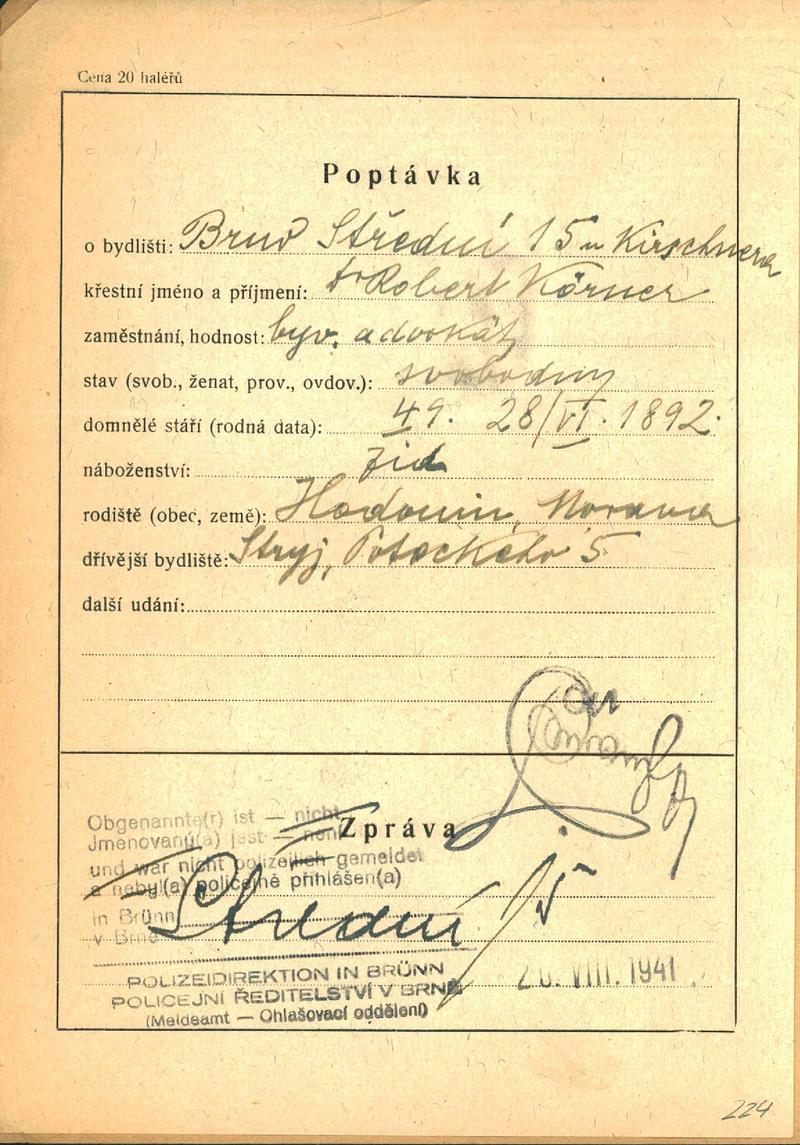 Cena 20 haléřů
Poptávka
o bydlišti: Brno Střední 15 u Kirschnera
křestní jméno a příjmení: Dr Robert Körner
zaměstnání, hodnost: byv. advokát
stav (svob., ženat, prov., ovdov.): svobodný
domnělé stáří (rodná data): 49. 28/VI. 1892.
náboženství: žid
rodiště (obec, země): Hodonín, Morava
dřívější bydliště: Stryj, Potockého 5
další udání:
Zpráva
Obgenannte(r) ist — nicht
Jmenovaný(a) jest — není
und war nicht polizeilich gemeldet
a nebyl(a) policejně přihlášen(a)
in Brünn
v Brně
Střední 15
POLIZEIDIREKTION IN BRÜNN
POLICEJNÍ ŘEDITELSTVÍ V BRNĚ
(Meldeamt — Ohlašovací oddělení)
VIII. 1941
224